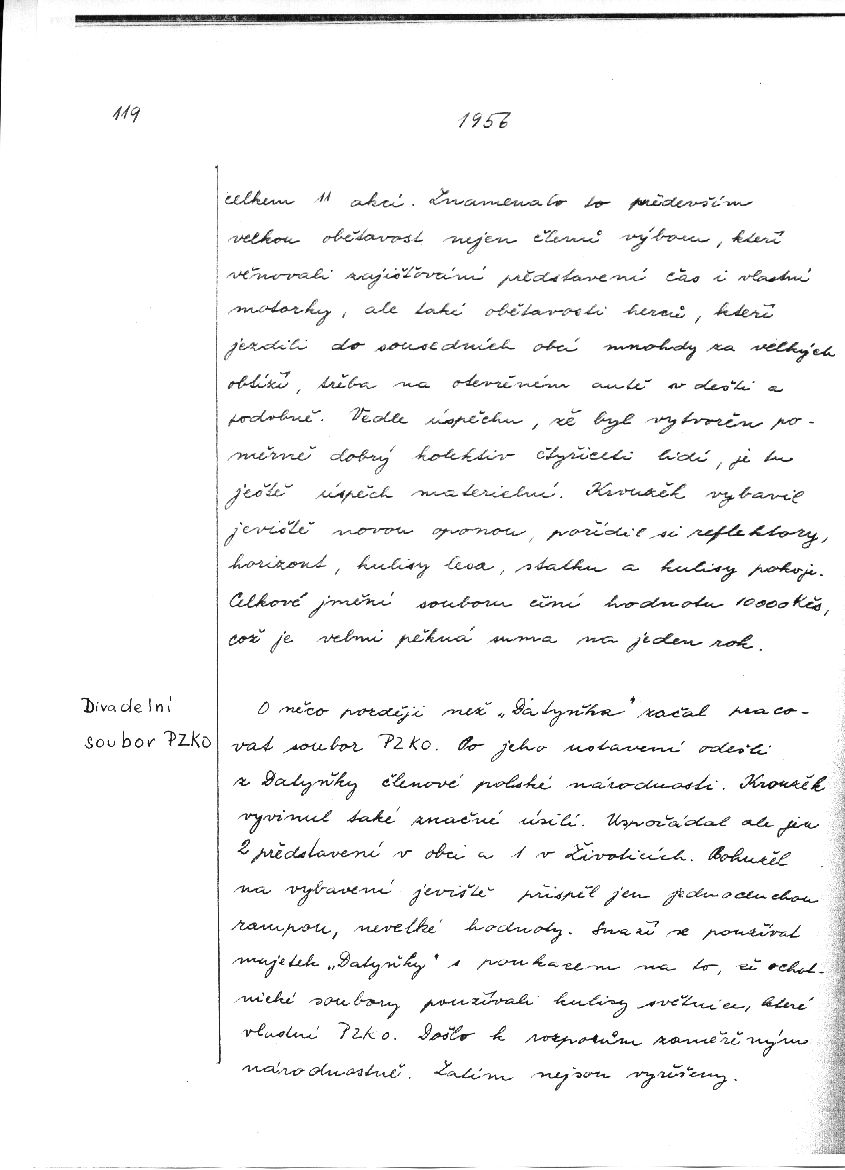 119
1956
celkem 11 akcí. Znamenalo to především
velkou obětavost nejen členů výboru, kteří
věnovali zajišťování představení čas i vlastní
motorky, ale také obětavosti herců, kteří
jezdili do sousedních obcí mnohdy za velkých
obtíží, třeba na otevřeném autě v dešti a
podobně. Vedle úspěchu, že byl vytvořen po-
měrně dobrý kolektiv čtyřiceti lidí, je tu
ještě úspěch materielní. Kroužek vybavil
jeviště novou oponou, pořídil si reflektory,
horizont, kulisy lesa, statku a kulisy pokoje.
Celkové jmění souboru činí hodnotu 10000 Kčs,
což je velmi pěkná suma na jeden rok.
Divadelní
soubor PZKO
O něco později než „Datyňka" začal praco-
vat soubor PZKO. Po jeho ustavení odešli
z Datyňky členové polské národnosti. Kroužek
vyvinul také značné úsilí. Uspořádal ale jen
2 představení v obci a 1 v Životicích. Bohužel
na vybavení jeviště přispěl jen jednoduchou
rampou, nevelké hodnoty. Snaží se používat
majetek „Datyňky" s poukazem na to, že ochot-
nické soubory používali kulisy světnice, které
vlastní PZKO. Došlo k rozporům zaměřeným
národnostně. Zatím nejsou vyřešeny.